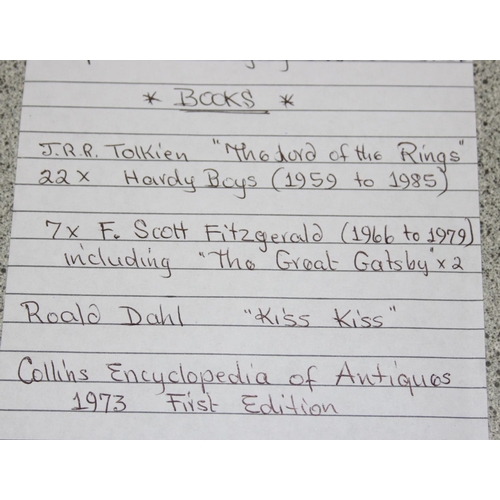 * BOOKS *
J.R.R. Tolkien "The Lord of the Rings"
22 x Hardy Boys (1959 to 1985)
7x F. Scott Fitzgerald (1966 to 1979)
including "The Great Gatsby" x 2
Roald Dahl "Kiss Kiss"
Collins Encyclopedia of Antiques
1973 First Edition